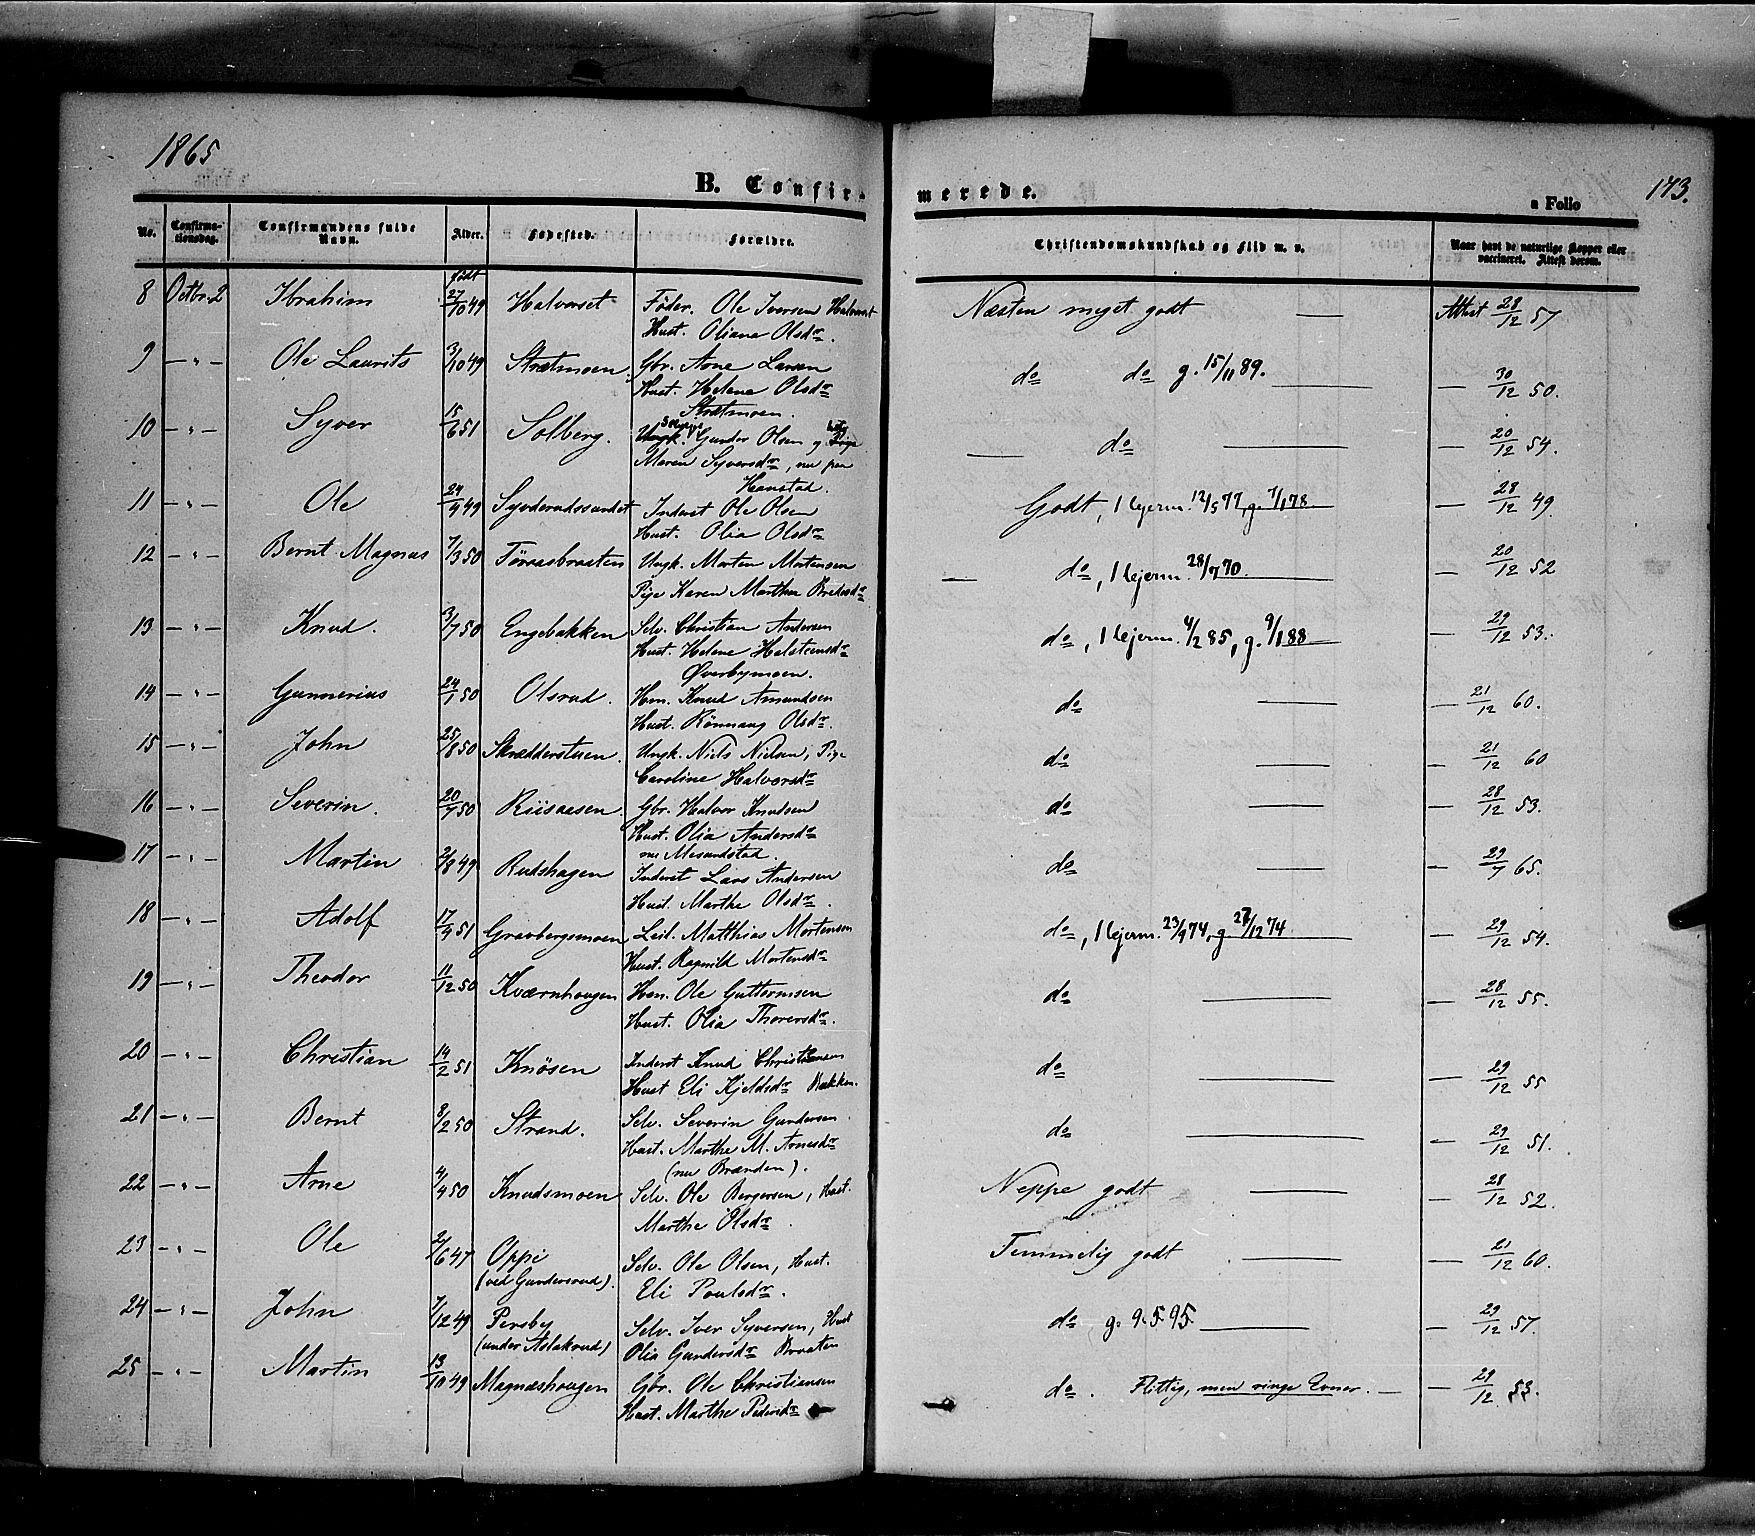 1865
B. Confir-
merede.
a Folio
173.
No.
Confirma-
tionsdag.
Confirmandens fulde
Navn.
Alder.
Fødested.
Forældre.
Christendomskundskab og Flid m. v.
Naar havt de naturlige Kopper eller
vaccineret. Attest derom.
født
8 Octbr. 2 Ibrahim 27/10 49 Halvorset Föder. Ole Iversen Halvorset Næsten meget godt — Attest 28/12 57
Hust. Oliana Olsdr.
9 — " — Ole Laurits 3/10 49 Strætmoen Gbr. Arne Larsen do do g. 15/11 89. — 30/12 50.
Hust. Helene Olsdr
Strætmoen.
10 — " — Syver 15/6 51 Solberg. Ungk. Gunder Olsen og Pige — do — 20/12 54.
Maren Syversdr, nu paa
Hanstad.
11 — " — Ole 24/4 49 Syverudssundet Inderst Ole Olsen Godt, 1 lejerm. 12/5 77, g. 7/1 78 — 28/12 49.
Hust. Olia Olsdr
12 — " — Bernt Magnus 7/3 50 Töraasbraaten Ungk. Morten Mortensen — do, 1 lejerm. 28/7 70. — 20/12 52
Pige Karen Marthea Bredesdr
13 — " — Knud. 3/7 50 Engebakken Selv. Christian Andersen do, 1 lejerm. 4/2 85, g. 9/1 88 — 29/12 53.
Hust. Helene Halsteensdr
Øverbymoen.
14 — " — Gunnerius 24/1 50 Olsrud. Hm. Knud Amundsen do — 21/12 60.
Hust. Rönnaug Olsdr.
15 — " — John 25/8 50 Skrædderstuen. Ungk. Niels Nielsen, Pige do — 21/12 60
Caroline Halvorsdr
16 — " — Severin. 20/7 50 Riisaasen. Gbr. Halvor Knudsen do — 28/12 53.
Hust. Olia Andersdr
nu Mesundstad.
17 — " — Martin 2/8 49 Rudshagen Inderst Lars Andersen do — 29/7 65.
Hust. Marthe Olsdr.
18 — " — Adolf 17/9 51 Gravbergsmoen Leil. Matthias Mortensen do, 1 lejerm. 23/9 74, g. 27/12 74 — 29/12 54.
Hust. Ragnild Mortensdr
19 — " — Theodor 11/12 50 Kværnhougen Hm. Ole Guttormsen do — 28/12 55.
Hust. Olia Thorersdr.
20 — " — Christian 14/2 51 Knösen Inderst Knud Christiansen do — 29/12 55
Hust Eli Kjeldsdr Bakken.
21 — " — Bernt 8/2 50 Strand. Selv. Severin Gundersen do — 29/12 51.
Hust. Marthe M. Arnesdr
(nu Brænden).
22 — " — Arne 4/4 50 Knudsmoen Selv. Ole Bergersen, Hust. Neppe godt — 28/12 52.
Marthe Olsdr.
23 — " — Ole 2/6 47 Oppi Selv. Ole Olsen, Hust. Temmelig godt — 21/12 60.
(ved Gundersrud). Eli Poulsdr.
24 — " — John 7/12 49 Persby Selv. Iver Syversen, Hust do g. 9.5.95. — 29/12 57.
(under Aslakrud) Olia Gundersdr Braaten
25 — " — Martin 13/10 49 Magnæshougen Gbr. Ole Christiansen do. Flittig, men ringe Evner. — 29/12 53.
Hust. Marthe Pedersdr